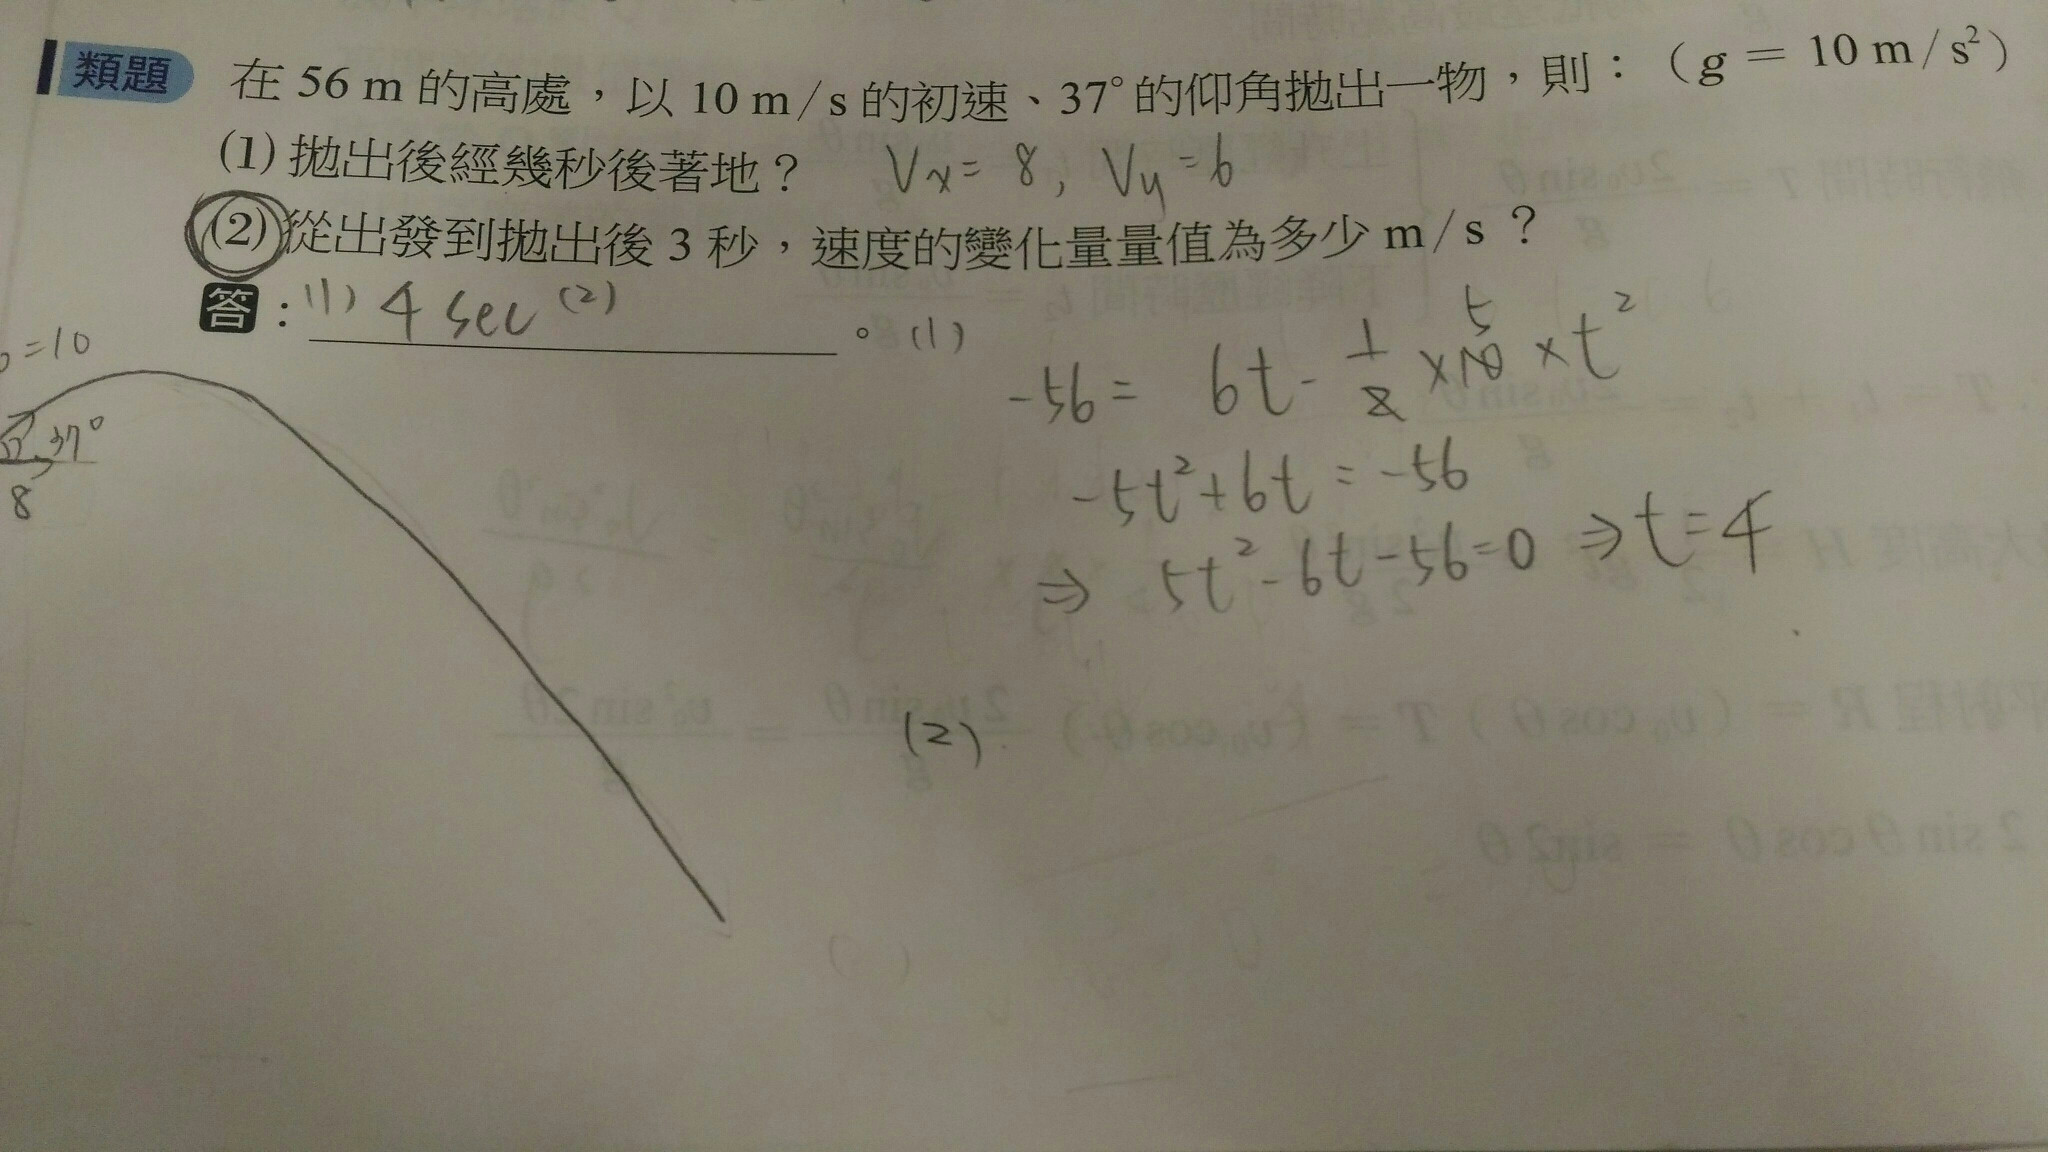 類題 在 56 m 的高處，以 10 m/s 的初速、37° 的仰角拋出一物，則：（g = 10 m/s²）
(1) 拋出後經幾秒後著地？ Vx = 8, Vy = 6
(2) 從出發到拋出後 3 秒，速度的變化量量值為多少 m/s？
答：(1) 4 sec (2) 。(1)
-56 = 6t - 1/2 × 10 5 × t²
=10
37°
8
-5t² + 6t = -56
⇒ 5t² - 6t - 56 = 0 ⇒ t = 4
(2)